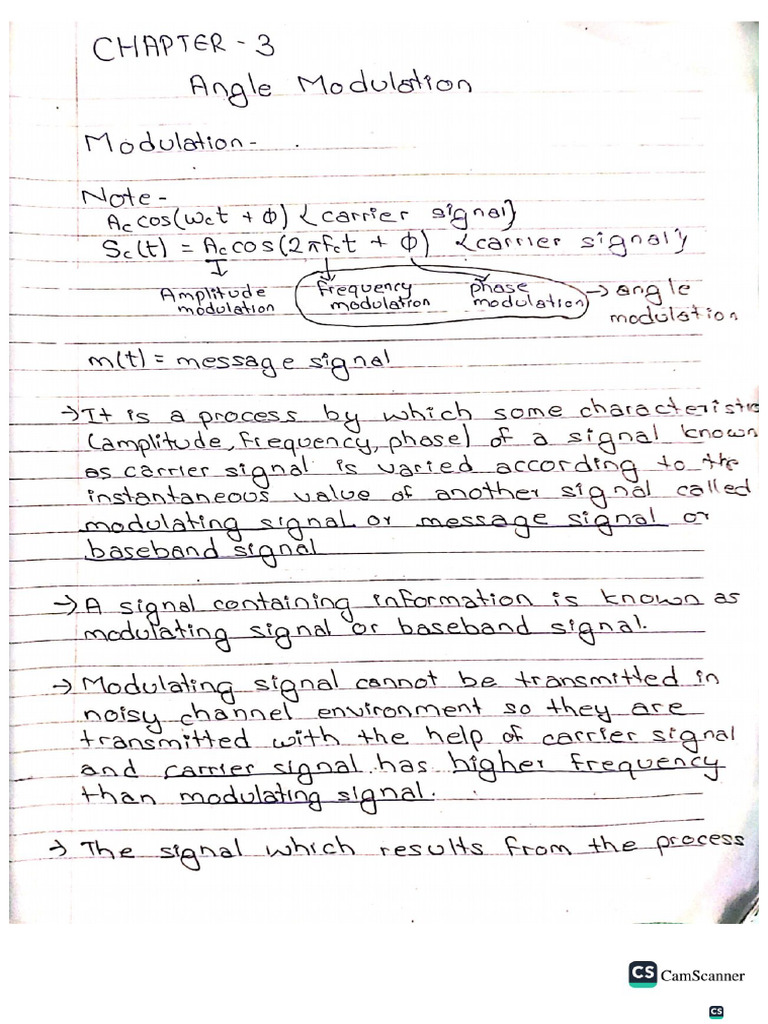 CHAPTER - 3
Angle Modulation
Modulation -
Note -
Ac cos(ωct + Φ) {carrier signal}
Sc(t) = Ac cos(2πfct + Φ) {carrier signal}
Amplitude modulation
frequency modulation
phase modulation
→ angle modulation
m(t) = message signal
→ It is a process by which some characteristic
(amplitude, frequency, phase) of a signal known
as carrier signal is varied according to the
instantaneous value of another signal called
modulating signal or message signal or
baseband signal
→ A signal containing information is known as
modulating signal or baseband signal.
→ Modulating signal cannot be transmitted in
noisy channel environment so they are
transmitted with the help of carrier signal
and carrier signal has higher frequency
than modulating signal.
→ The signal which results from the process
CS CamScanner
CS